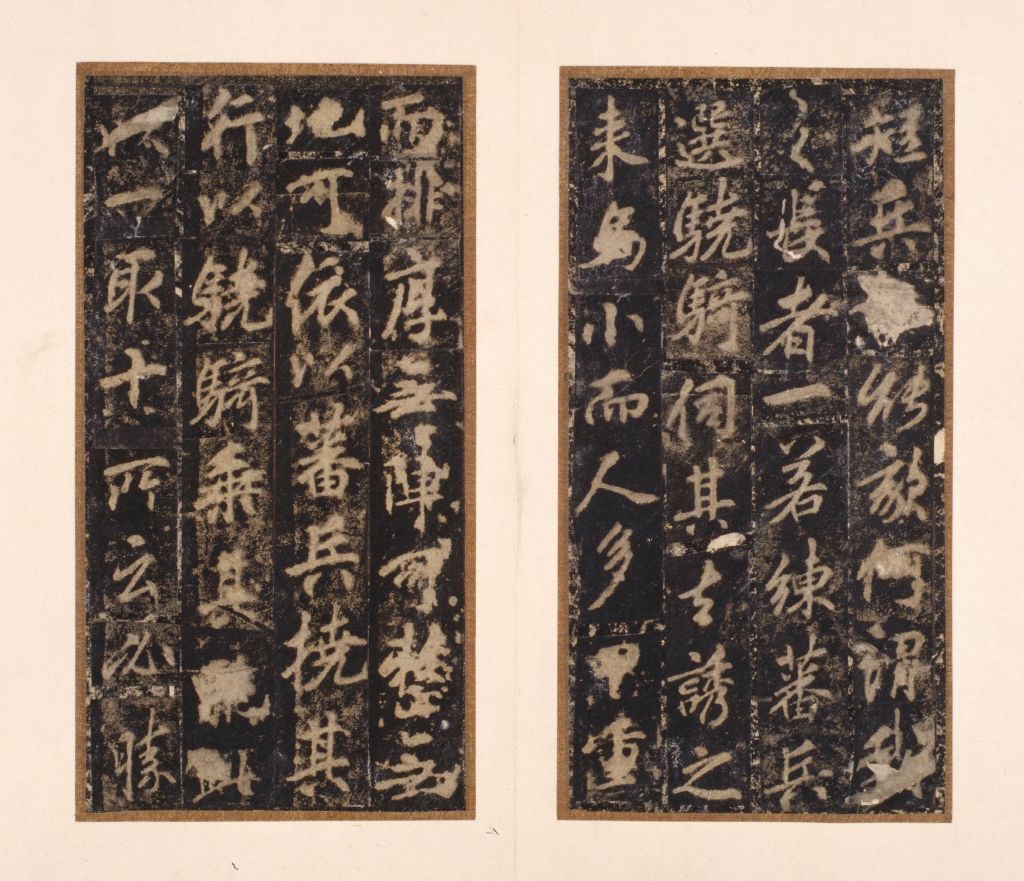 短兵能敵何謂我
之長者一若練蕃兵
選驍騎伺其去誘之
来必小而人多重
而排厚云陣可整云
地可依以蕃兵撓其
行以驍騎乘其
以一取十所云必勝